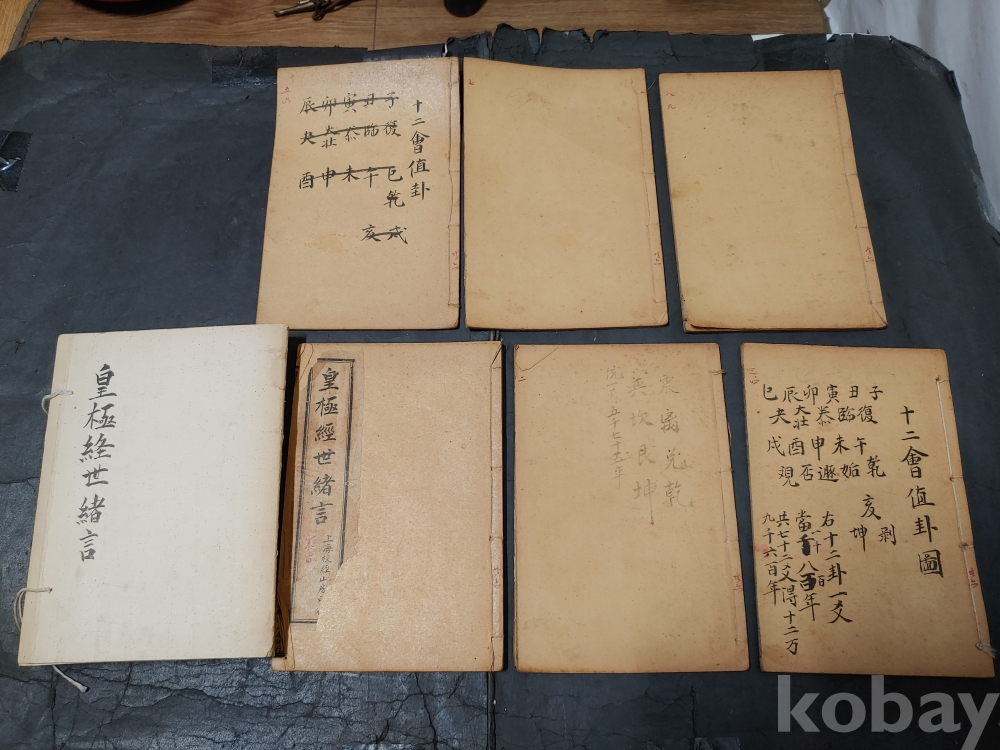 十二會值卦
子復
丑臨
寅泰
卯大壯
辰夬
巳乾
午
未
申
酉
戌
亥
皇極経世緒言
皇極經世緒言
上海校經山房
二
離兌乾
坎艮坤
十二會值卦圖
子復 午
丑臨 未姤
寅泰 申遯
卯大壯 酉否
辰夬 戌觀
巳乾 亥剥
坤
右十二卦一爻
當一千八百年
共七十二爻得十二万
九千六百年
kobay